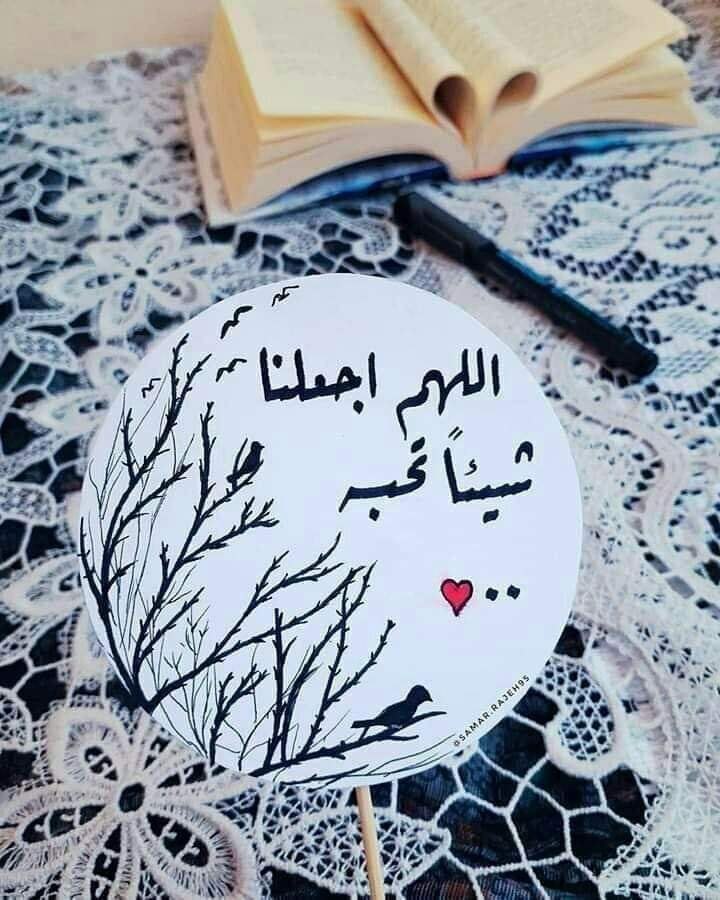 اللهم اجعلنا
شيئاً تحبه
..
@SAMAR.RAJEH95